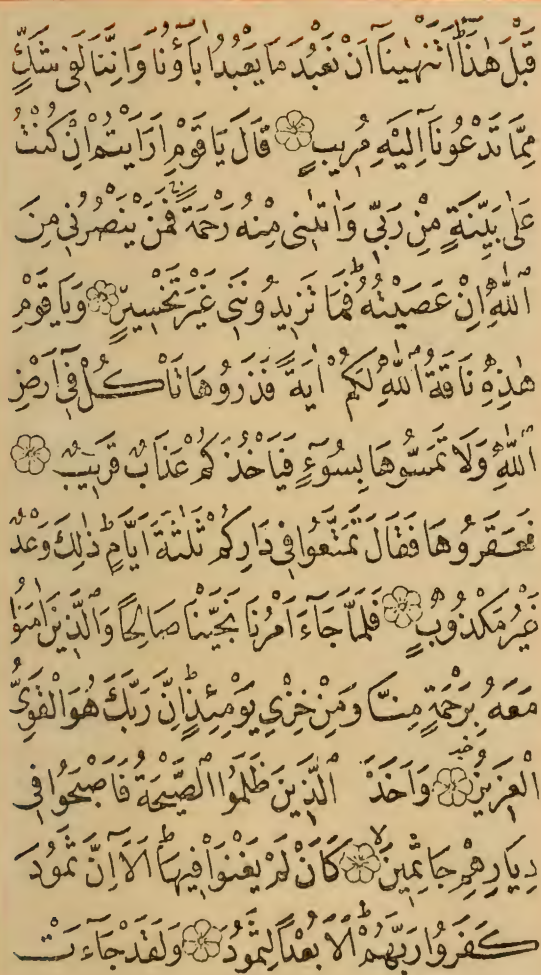 قَبْلَ هٰذَاۜ اَتَنْهٰينَٓا اَنْ نَعْبُدَ مَا يَعْبُدُ اٰبَٓاؤُ۬نَا وَاِنَّنَا لَفٖى شَكٍّ
مِمَّا تَدْعُونَٓا اِلَيْهِ مُرٖيبٍ قَالَ يَا قَوْمِ اَرَاَيْتُمْ اِنْ كُنْتُ
عَلٰى بَيِّنَةٍ مِنْ رَبّٖى وَاٰتٰينٖى مِنْهُ رَحْمَةً فَمَنْ يَنْصُرُنٖى مِنَ
اللّٰهِ اِنْ عَصَيْتُهُ ط فَمَا تَزٖيدُونَنٖى غَيْرَ تَخْسٖيرٍ وَيَا قَوْمِ
هٰذِهٖ نَاقَةُ اللّٰهِ لَكُمْ اٰيَةً فَذَرُوهَا تَاْكُلْ فٖٓى اَرْضِ
اللّٰهِ وَلَا تَمَسُّوهَا بِسُٓوءٍ فَيَاْخُذَكُمْ عَذَابٌ قَرٖيبٌ
فَعَقَرُوهَا فَقَالَ تَمَتَّعُوا فٖى دَارِكُمْ ثَلٰثَةَ اَيَّامٍ ط ذٰلِكَ وَعْدٌ
غَيْرُ مَكْذُوبٍ فَلَمَّا جَٓاءَ اَمْرُنَا نَجَّيْنَا صَالِحًا وَالَّذٖينَ اٰمَنُوا
مَعَهُ بِرَحْمَةٍ مِنَّا وَمِنْ خِزْىِ يَوْمِئِذٍ ط اِنَّ رَبَّكَ هُوَ الْقَوِىُّ
الْعَزٖيزُ وَاَخَذَ الَّذٖينَ ظَلَمُوا الصَّيْحَةُ فَاَصْبَحُوا فٖى
دِيَارِهِمْ جَاثِمٖينَ لا كَاَنْ لَمْ يَغْنَوْا فٖيهَا ط اَلَٓا اِنَّ ثَمُودَ
كَفَرُوا رَبَّهُمْ ط اَلَا بُعْدًا لِثَمُودَ وَلَقَدْ جَٓاءَتْ